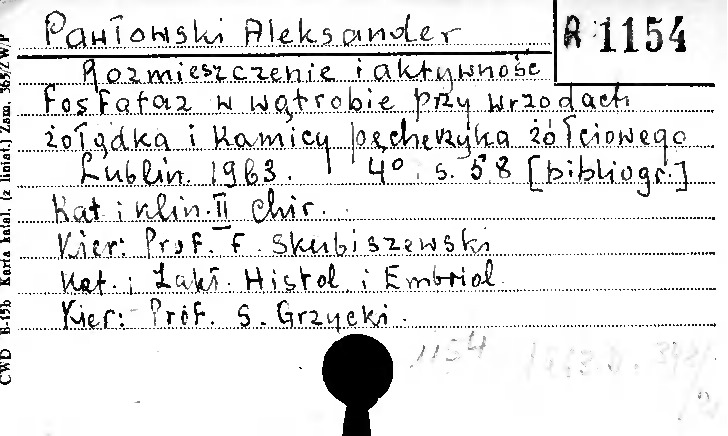 Pawłowski Aleksander
A 1154
Rozmieszczenie i aktywność
fosfataz w wątrobie przy wrzodach
żołądka i kamicy pęcherzyka żółciowego
Lublin. 1963. 4° s. 58 [bibliogr.]
Kat i Klin. II Chir.
Kier: Prof. F. Skubiszewski
Kat. i Zakł. Histol. i Embriol
Kier: Prof. S. Grzycki.
1154
CWD B-15b Karta katal. (z liniat.) Zam. 365/ZW/P